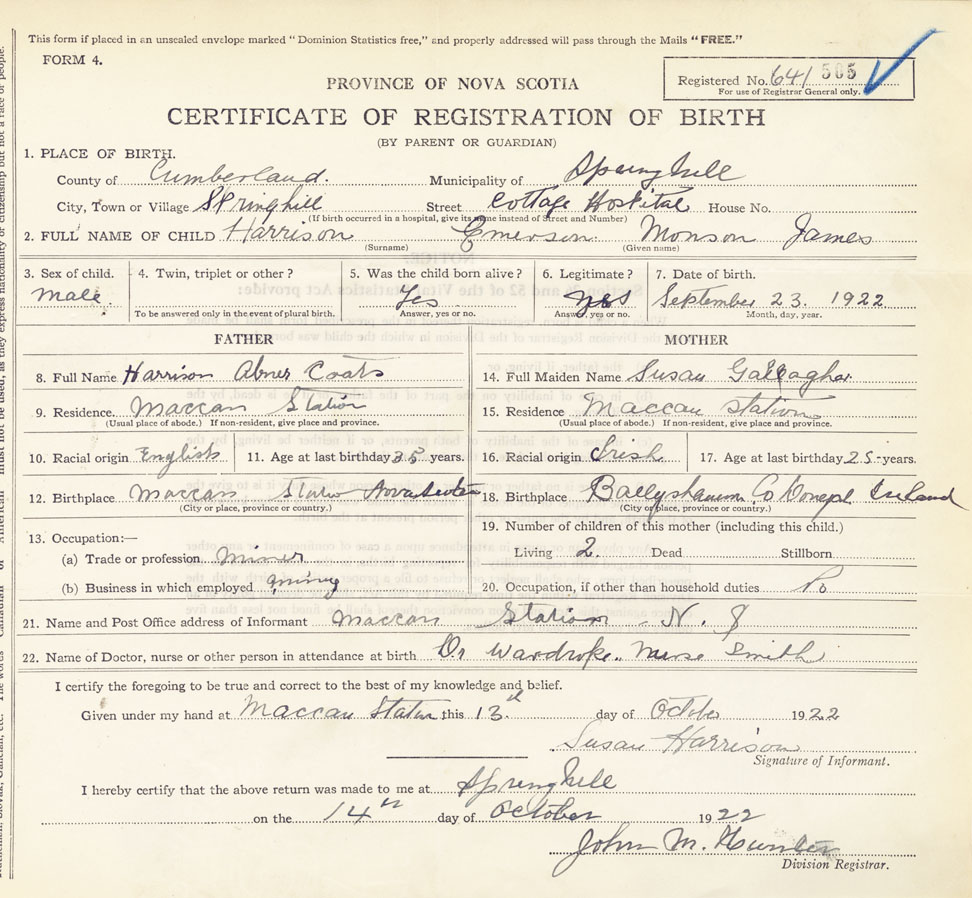 This form if placed in an unsealed envelope marked "Dominion Statistics free," and properly addressed will pass through the Mails "FREE."
FORM 4.
Registered No. 641 505
For use of Registrar General only.
PROVINCE OF NOVA SCOTIA
CERTIFICATE OF REGISTRATION OF BIRTH
(BY PARENT OR GUARDIAN)
1. PLACE OF BIRTH.
County of Cumberland. Municipality of Springhill
City, Town or Village Springhill Street Cottage Hospital House No.
(If birth occurred in a hospital, give its name instead of Street and Number)
2. FULL NAME OF CHILD Harrison Emerson Monson James
(Surname) (Given name)
3. Sex of child. 4. Twin, triplet or other? 5. Was the child born alive? 6. Legitimate? 7. Date of birth.
male. Yes yes September 23. 1922
To be answered only in the event of plural birth. Answer, yes or no. Answer, yes or no. Month, day, year.
FATHER MOTHER
8. Full Name Harrison Abner Coats 14. Full Maiden Name Susan Gallagher
9. Residence. Maccan Station 15. Residence Maccan Station
(Usual place of abode.) If non-resident, give place and province. (Usual place of abode.) If non-resident, give place and province.
10. Racial origin English 11. Age at last birthday 35 years. 16. Racial origin Irish 17. Age at last birthday 25 years.
12. Birthplace Maccan Station Nova Scotia 18. Birthplace Co Donegal Ireland
(City or place, province or country.) (City or place, province or country.)
13. Occupation:— 19. Number of children of this mother (including this child.)
(a) Trade or profession miner Living 2. Dead Stillborn
(b) Business in which employed mining 20. Occupation, if other than household duties No
21. Name and Post Office address of Informant Maccan Station - N. S
22. Name of Doctor, nurse or other person in attendance at birth Dr Wardrope.. Nurse Smith
I certify the foregoing to be true and correct to the best of my knowledge and belief.
Given under my hand at Maccan Station this 13th day of October 1922
Susan Harrison
Signature of Informant.
I hereby certify that the above return was made to me at Springhill
on the 14th day of October 1922
John M. Hunter
Division Registrar.